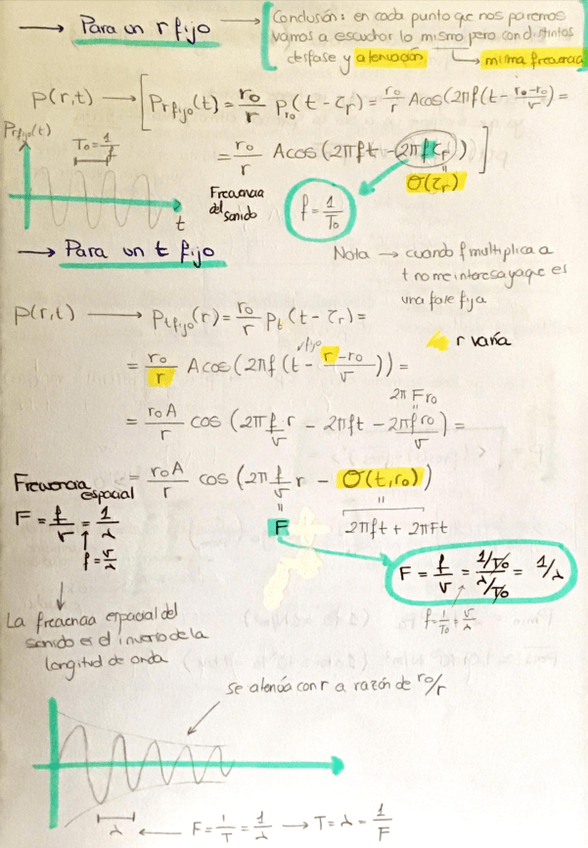 → Para un r fijo → [Conclusión: en cada punto que nos paremos
vamos a escuchar lo mismo pero con distintos
desfase y atenuación → misma frecuencia
p(r,t) → [P_rfijo(t) = r₀/r P_r₀(t - τr) = r₀/r Acos(2πf(t - (r₀-r₀)/v) =
= r₀/r Acos(2πft - (2πfτr))]
Θ(τr)
P_rfijo(t)
T₀ = 1/f
t
Frecuencia
del sonido
f = 1/T₀
→ Para un t fijo
Nota → cuando f multiplica a
t no me interesa ya que es
una fase fija
p(r,t) → P_tfijo(r) = r₀/r P_t(t - τr) =
r varía
fijo
= r₀/r Acos(2πf(t - (r-r₀)/v)) =
2πFr₀
= r₀A/r cos(2π f/v r - 2πft - 2πfr₀/v) =
= r₀A/r cos(2π f/v r - Θ(t,r₀))
F
2πft + 2πFt
Frecuencia
espacial
F = f/v = 1/λ
f = v/λ
F = f/v = (1/T₀)/(λ/T₀) = 1/λ
f = 1/T₀ = v/λ
La frecuencia espacial del
sonido es el inverso de la
longitud de onda
se atenúa con r a razón de r₀/r
λ ← F = 1/T = 1/λ → T = λ = 1/F